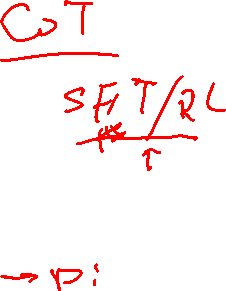 CoT
SFT/RL
→ Di